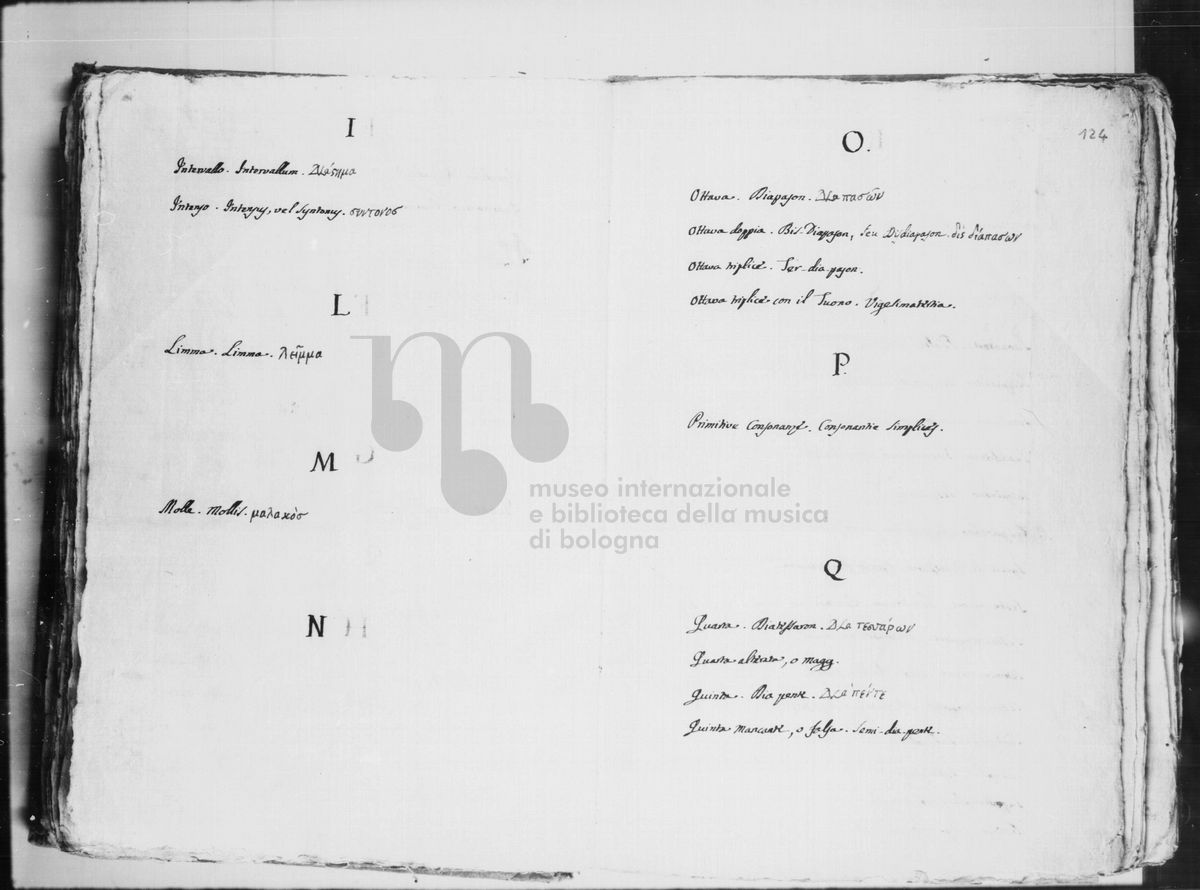 I
Intervallo. Intervallum. Διάςημα
Intenso. Intensus, vel Syntonus. συντονοσ
L
Limma. Limma. λεῖμμα
M
Molle. Mollis. μαλακὸσ
N
124
O.
Ottava. Diapason. Δια πασῶν
Ottava doppia. Bis-Diapason, seu Disdiapason. δὶς διάπασων
Ottava triplicè. Ter-dia-pason.
Ottava triplicè con il Tuono. Vigesimatertia.
P.
Primitive Consonanze. Consonantie Simplices.
Q
Quarta. Diatessaron. Δια τεσσάρων
Quarta alterata, o magg.
Quinta. Dia pente. Δια πέντε
Quinta mancante, o falsa. Semi-dia-pente.
museo internazionale
e biblioteca della musica
di bologna